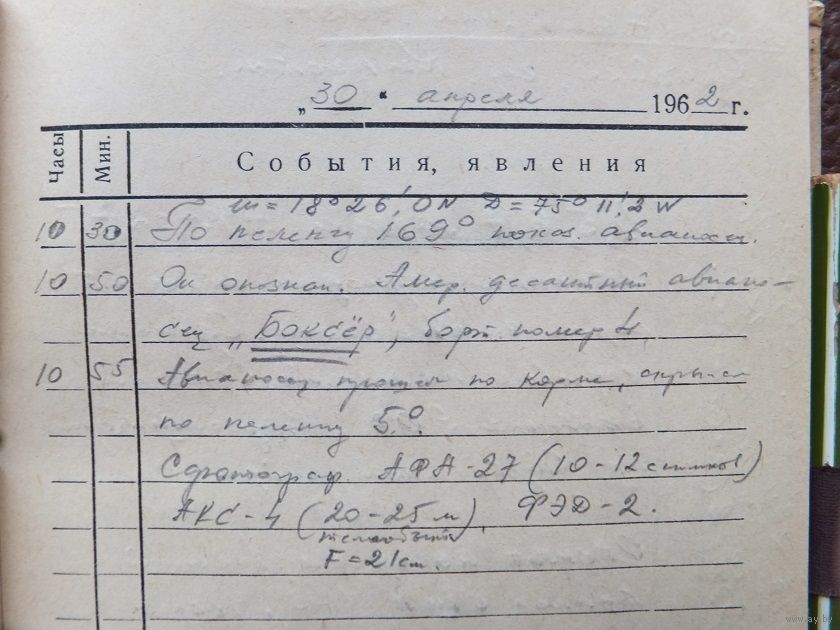 „30“ апреля 1962 г.
Часы Мин. События, явления
Ш = 18° 26,'0 N Д = 75° 11,'2 W
10 30 По пеленгу 169° показ. авианосец.
10 50 Он опознан. Амер. десантный авиано-
сец „Боксёр", борт. номер 4.
10 55 Авианосец прошел по корме, скрылся
по пеленгу 5°.
Сфотограф. АФА-27 (10-12 снимков)
АКС-4 (20-25 м), ФЭД-2.
F = 21 см.
www.ay.by